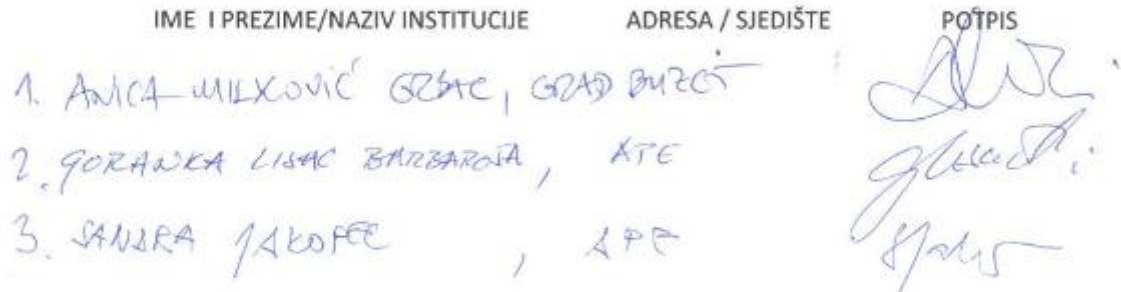 IME I PREZIME/NAZIV INSTITUCIJE ADRESA / SJEDIŠTE POTPIS
1. ANICA MILKOVIĆ GRBAC, GRAD BUZET
2. GORANKA LISAC BARBAROŠA,
3. SANDRA JAKOPEC , APE